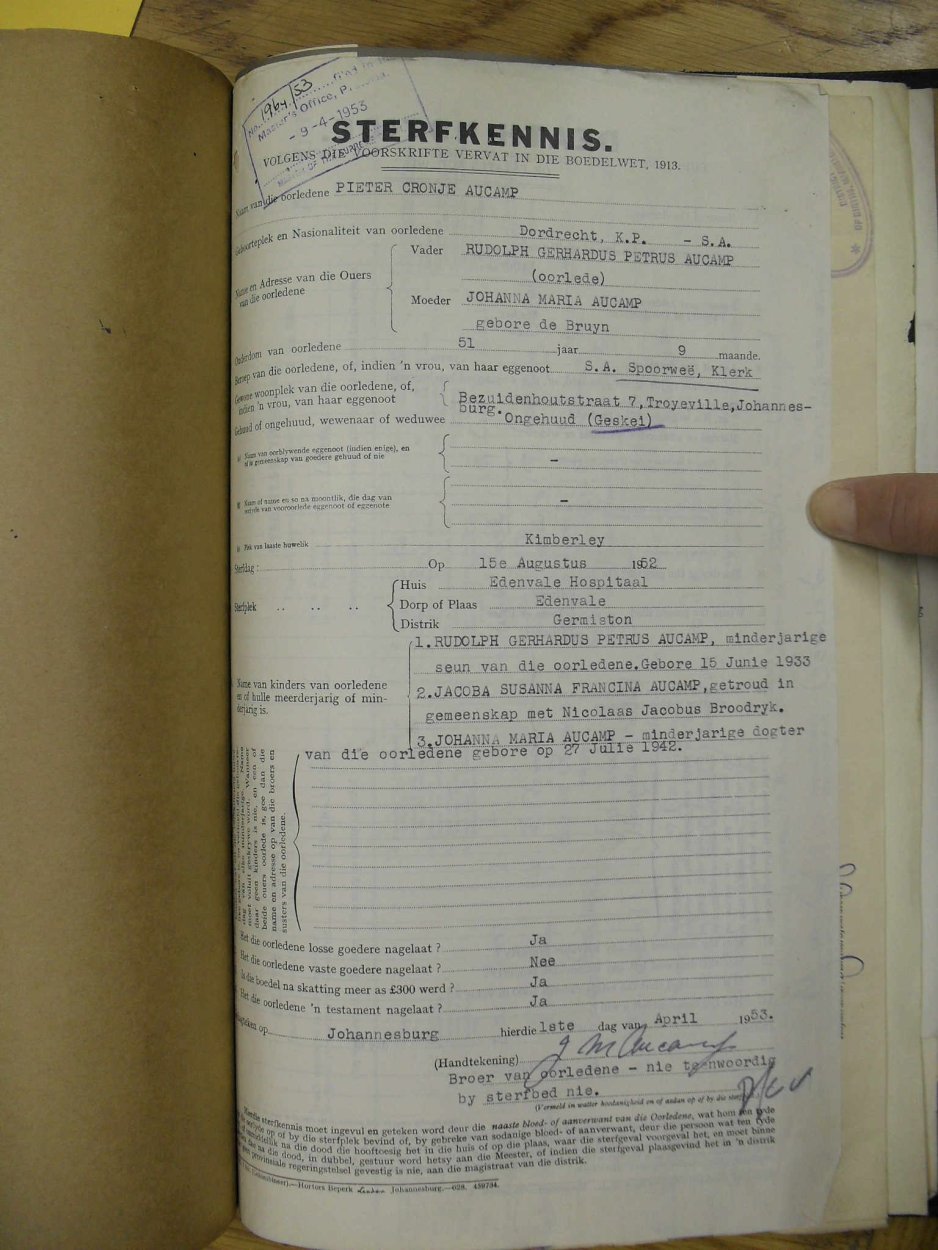 No. 1964/53
Master's Office,
- 9 - 4 - 1953
STERFKENNIS.
VOLGENS DIE VOORSKRIFTE VERVAT IN DIE BOEDELWET, 1913.
Naam van die oorledene PIETER CRONJE AUCAMP
Geboorteplek en Nasionaliteit van oorledene Dordrecht, K.P. - S.A.
Vader RUDOLPH GERHARDUS PETRUS AUCAMP
Name en Adresse van die Ouers
van die oorledene
(oorlede)
Moeder JOHANNA MARIA AUCAMP
gebore de Bruyn
Ouderdom van oorledene 51 jaar 9 maande.
Beroep van die oorledene, of, indien 'n vrou, van haar eggenoot S.A. Spoorweë, Klerk
Gewone woonplek van die oorledene, of,
indien 'n vrou, van haar eggenoot
Bezuidenhoutstraat 7, Troyeville, Johannes-
burg.
Gehud of ongehuud, wewenaar of weduwee Ongehuud (Geskei)
Naam van oorblywende eggenoot (indien enige), en
of in gemeenskap van goedere gehuud of nie
-
Naam of name en so na moontlik, die dag van
van vooroorlede eggenoot of eggenote
-
Plek van laaste huwelik Kimberley
Sterfdag: Op 15e Augustus 1952
Huis Edenvale Hospitaal
Sterfplek .. .. .. Dorp of Plaas Edenvale
Distrik Germiston
1. RUDOLPH GERHARDUS PETRUS AUCAMP, minderjarige
seun van die oorledene. Gebore 15 Junie 1933
Name van kinders van oorledene
en of hulle meerderjarig of min-
derjarig is.
2. JACOBA SUSANNA FRANCINA AUCAMP, getroud in
gemeenskap met Nicolaas Jacobus Broodryk.
3. JOHANNA MARIA AUCAMP - minderjarige dogter
van die oorledene gebore op 27 Julie 1942.
moet voluit geskrywe word. Wanneer
daar geen kinders is nie, en een of
beide ouers oorlede is, gee dan die
name en adresse op van die broers en
susters van die oorledene.
Het die oorledene losse goedere nagelaat? Ja
Het die oorledene vaste goedere nagelaat? Nee
Is die boedel na skatting meer as £300 werd? Ja
Het die oorledene 'n testament nagelaat? Ja
op Johannesburg hierdie 1ste dag van April 1953.
(Handtekening) J M Aucamp
Broer van oorledene - nie teenwoordig
by sterfbed nie.
(Vermeld in watter hoedanigheid en of aldan op of by die
Hierdie sterfkennis moet ingevul en geteken word deur die naaste bloed- of aanverwant van die Oorledene, wat hom ten tyde
op of by die sterfplek bevind of, by gebreke van sodanige bloed- of aanverwant, deur die persoon wat ten tyde
na die dood die hooftoesig het in die huis of op die plaas, waar die sterfgeval voorgeval het, en moet binne
na die dood, in dubbel, gestuur word hetsy aan die Meester, of indien die sterfgeval plaasgevind het in 'n distrik
provinsiale regeringstelsel gevestig is nie, aan die magistraat van die distrik.
Hortors Beperk Johannesburg.—028. 459734.